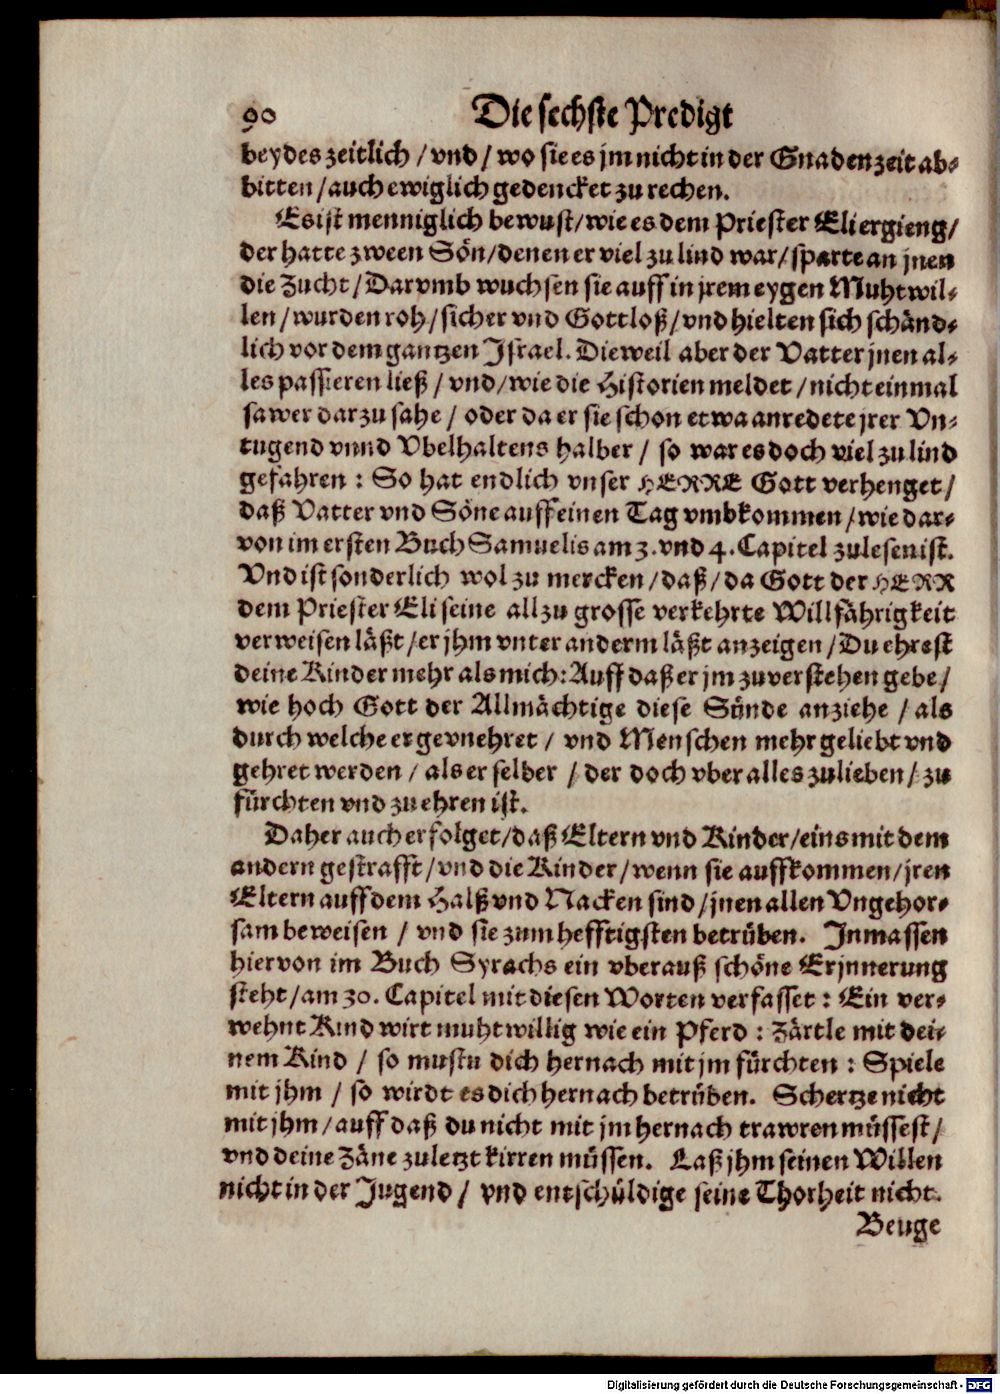 90 Die sechste Predigt
beydes zeitlich / vnd / wo sie es jm nicht in der Gnadenzeit ab-
bitten / auch ewiglich gedencket zu rechen.
Es ist menniglich bewust / wie es dem Priester Eli ergieng /
der hatte zween Sön / denen er viel zu lind war / sparte an jnen
die Zucht / Darvmb wuchsen sie auff in jrem eygen Muhtwil-
len / wurden roh / sicher vnd Gottloß / vnd hielten sich schänd-
lich vor dem gantzen Jsrael. Dieweil aber der Vatter jnen al-
les passieren ließ / vnd / wie die Historien meldet / nicht einmal
sawer darzu sahe / oder da er sie schon etwa anredete jrer Vn-
tugend vnnd Vbelhaltens halber / so war es doch viel zu lind
gefahren : So hat endlich vnser HERRE Gott verhenget /
daß Vatter vnd Söne auff einen Tag vmbkommen / wie dar-
von im ersten Buch Samuelis am 3. vnd 4. Capitel zu lesen ist.
Vnd ist sonderlich wol zu mercken / daß / da Gott der HERR
dem Priester Eli seine allzu grosse verkehrte Willfährigkeit
verweisen läßt / er jhm vnter anderm läßt anzeigen / Du ehrest
deine Kinder mehr als mich: Auff daß er jm zuverstehen gebe /
wie hoch Gott der Allmächtige diese Sünde anziehe / als
durch welche er gevnehret / vnd Menschen mehr geliebt vnd
gehret werden / als er selber / der doch vber alles zu lieben / zu
fürchten vnd zu ehren ist.
Daher auch erfolget / daß Eltern vnd Kinder / eins mit dem
andern gestrafft / vnd die Kinder / wenn sie auffkommen / jren
Eltern auff dem Halß vnd Nacken sind / jnen allen Vngehor-
sam beweisen / vnd sie zum hefftigsten betrüben. Jnmassen
hiervon im Buch Syrachs ein vberauß schöne Erjnnerung
steht / am 30. Capitel mit diesen Worten verfasset : Ein ver-
wehnt Kind wirt muhtwillig wie ein Pferd : Zärtle mit dei-
nem Kind / so mustu dich hernach mit jm fürchten : Spiele
mit jhm / so wirdt es dich hernach betrüben. Schertze nicht
mit jhm / auff daß du nicht mit jm hernach trawren müssest /
vnd deine Zäne zuletzt kirren müssen. Laß jhm seinen Willen
nicht in der Jugend / vnd entschüldige seine Thorheit nicht.
Beuge
Digitalisierung gefördert durch die Deutsche Forschungsgemeinschaft - DFG